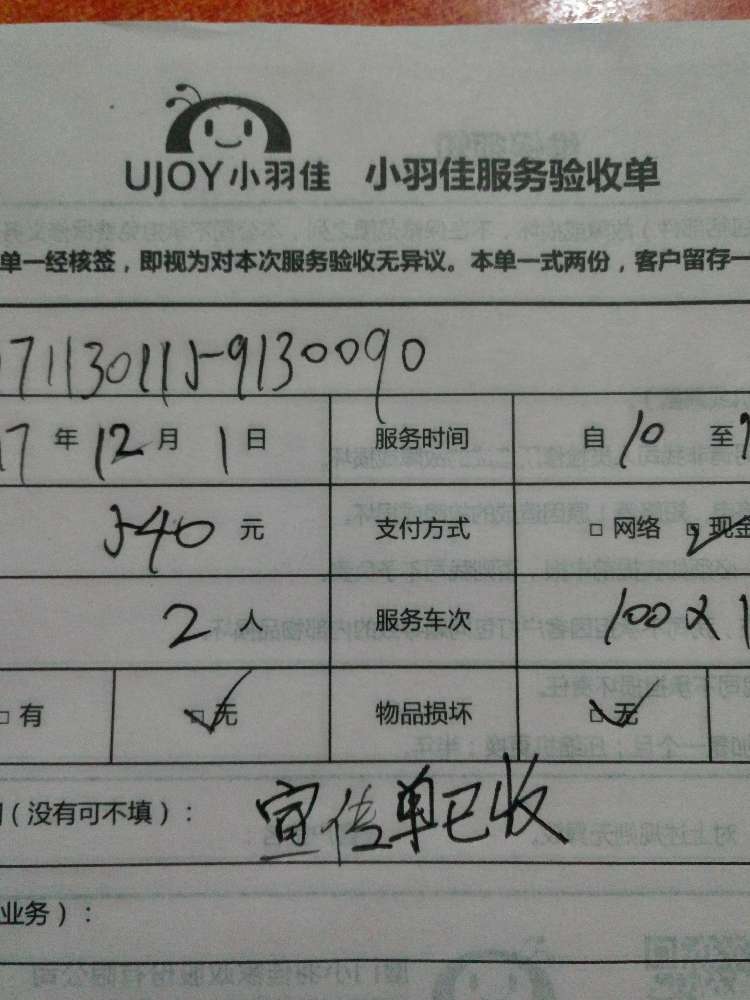 UJOY小羽佳 小羽佳服务验收单
单一经核签，即视为对本次服务验收无异议。本单一式两份，客户留存一
71130115-9130090
7年12月1日 服务时间 自10至
540元 支付方式 □网络 □现金
2人 服务车次 100×1
□有 □无 物品损坏 □无
（没有可不填）： 宣传单已收
业务）：